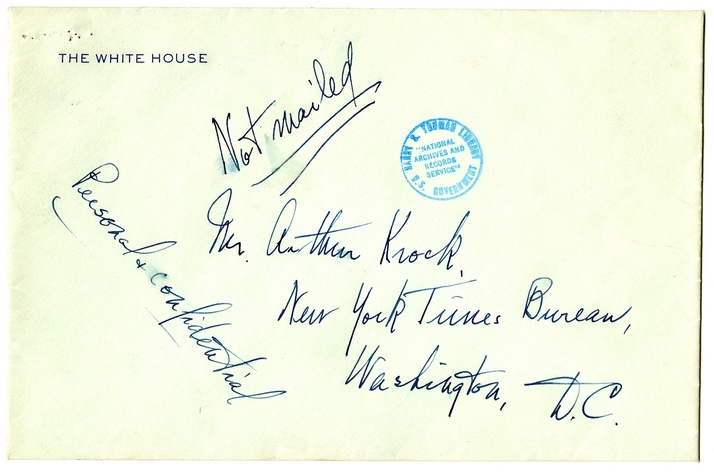 THE WHITE HOUSE
Not mailed
HARRY S. TRUMAN LIBRARY
"NATIONAL
ARCHIVES AND
RECORDS
SERVICE"
U.S. GOVERNMENT
Personal & confidential
Mr. Arthur Krock,
New York Times Bureau,
Washington, D.C.